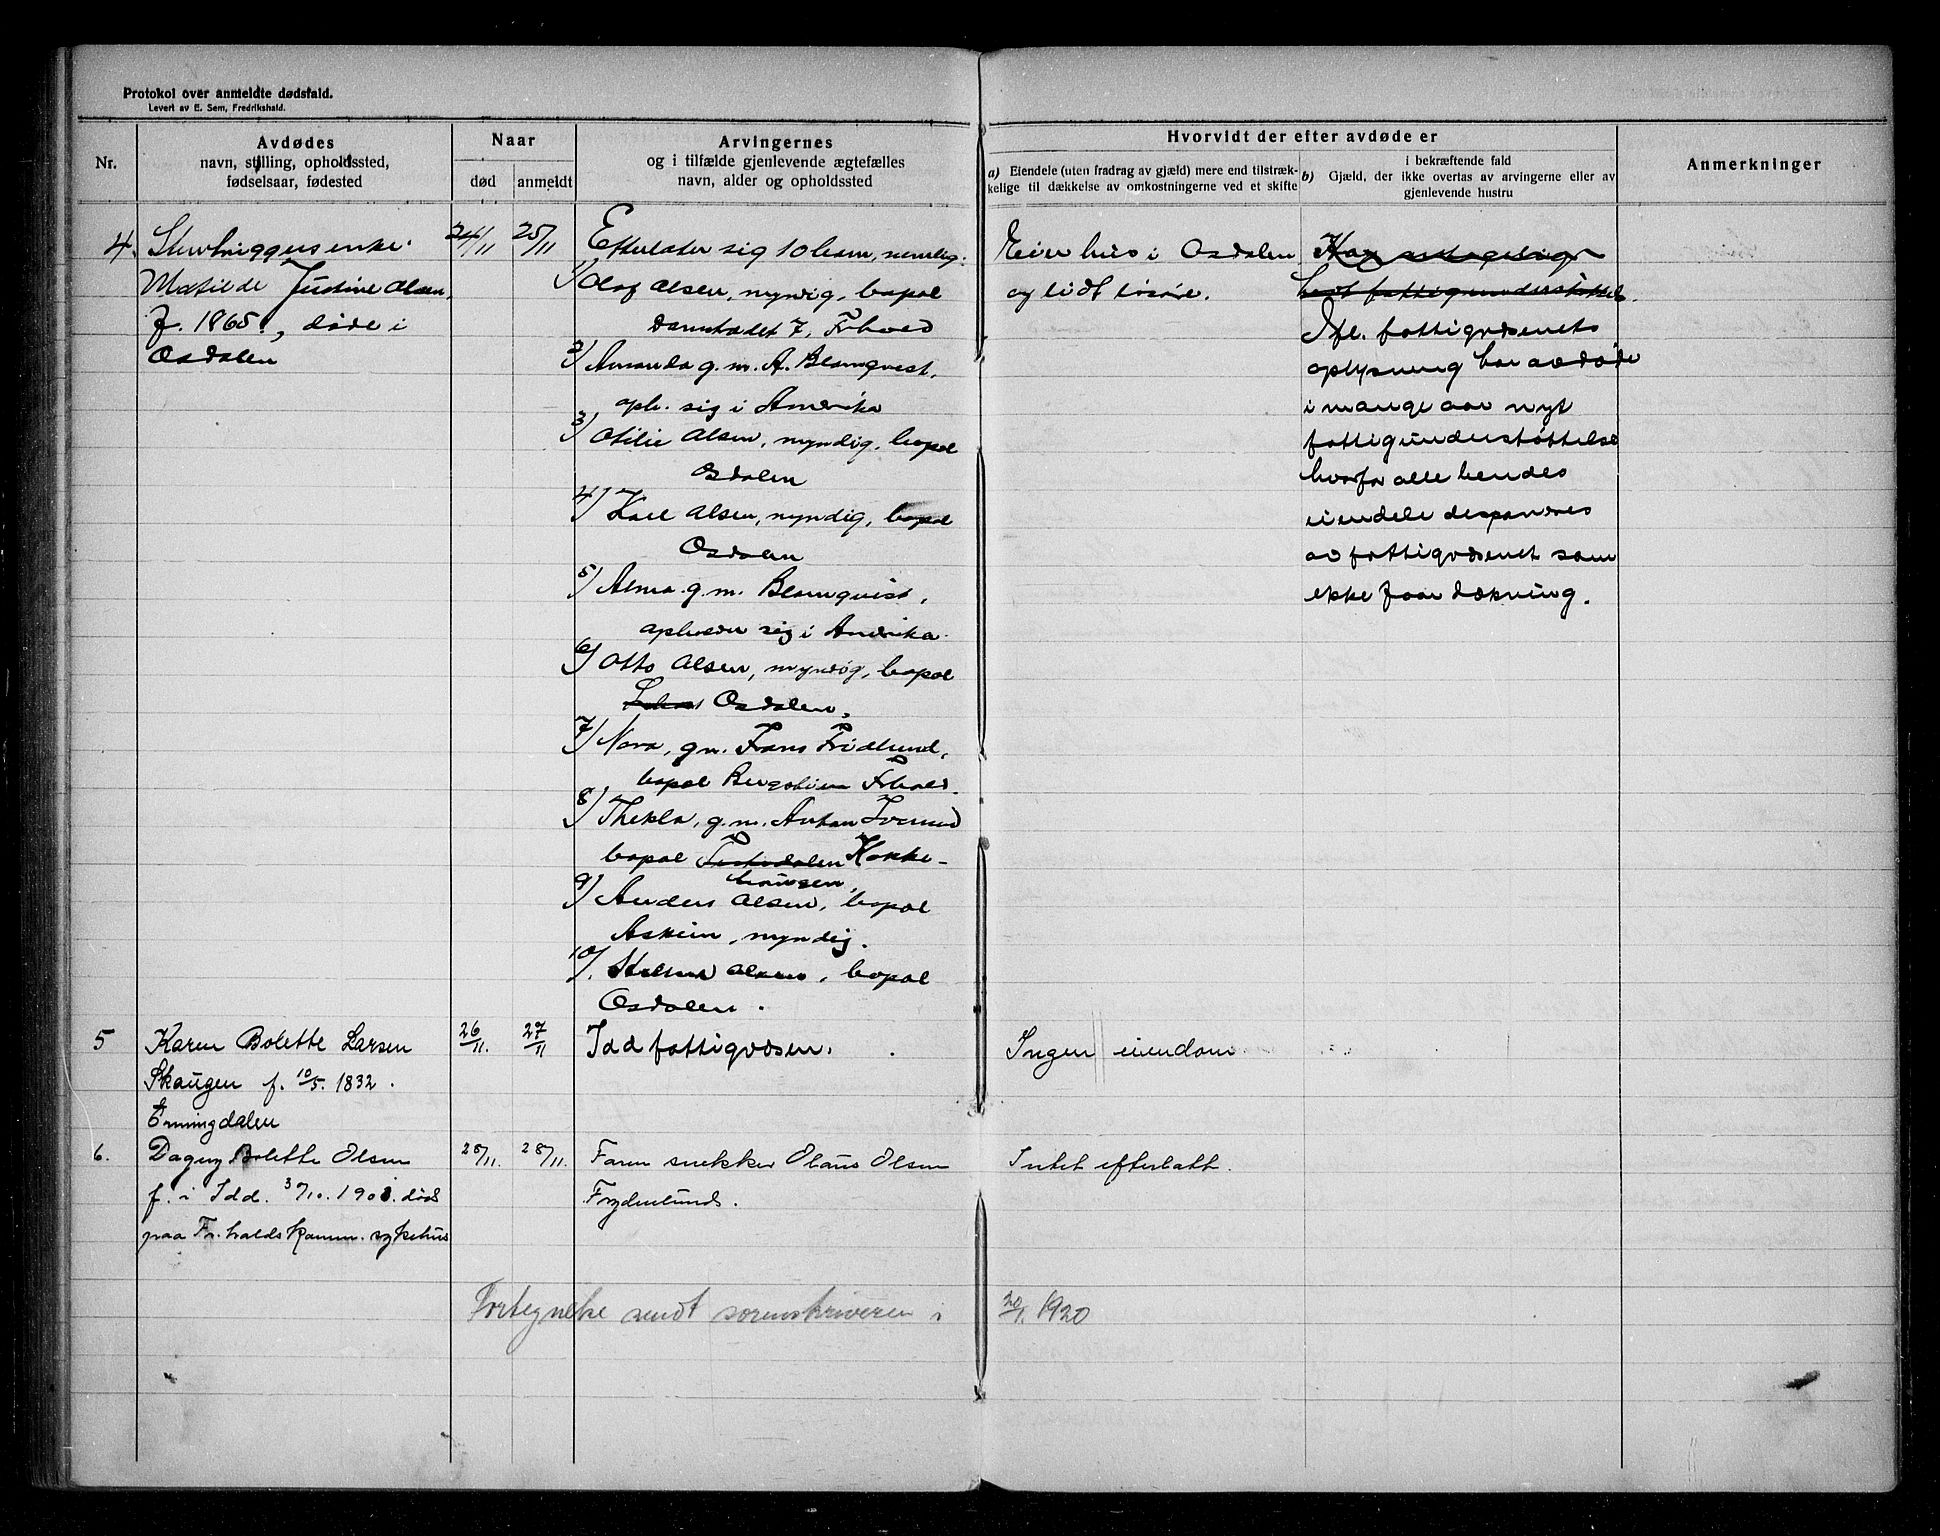 Protokol over anmeldte dødsfald.
Levert av E. Sem, Fredrikshald.
Nr.
Avdødes
navn, stilling, opholdssted,
fødselsaar, fødested
Naar
død
anmeldt
Arvingernes
og i tilfælde gjenlevende ægtefælles
navn, alder og opholdssted
Hvorvidt der efter avdøde er
a) Eiendele (uten fradrag av gjæld) mere end tilstræk-
kelige til dækkelse av omkostningerne ved et skifte
i bekræftende fald
b) Gjæld, der ikke overtas av arvingerne eller av
gjenlevende hustru
Anmerkninger
4.
Stenhuggersenke
Matilde Justine Olsen,
f. 1865, døde i
Osdalen
24/11
25/11
Efterlater sig 10 barn, nemlig:
1) Olaf Olsen, myndig, bopæl
Damstædet 7, Frhald
2) Amanda g.m. A. Blomqvist,
oph. sig i Amerika
3) Otilie Olsen, myndig, bopæl
Osdalen
4) Karl Olsen, myndig, bopæl
Osdalen
5) Alma g.m. Blomqvist,
opholder sig i Amerika
6) Otto Olsen, myndig, bopæl
Osdalen.
7) Nora, g.m. Frans Fridlund,
bopæl Bergstien Frhald.
8) Thekla, g.m. Anton Iversen
bopæl Tistedalen Hokke-
haugen,
9) Anders Olsen, bopæl
Askim, myndig.
10) Olsen, bopæl
Osdalen.
Eier hus i Osdalen
og lidt løsøre.
Har antagelig
hat fattigunderstøttelse.
Ifl. fattigvæsenets
oplysning har avdøde
i mange aar nyt
fattigunderstøttelse
hvorfor alle hendes
eiendele disponeres
av fattigvæsenet som
ikke faar dækning.
5
Karen Bolette Larsen
Skaugen f. 10/5. 1832.
Enningdalen
26/11.
27/11
Idd fattigvæsen.
Ingen eiendom
6.
Dagny Bolette Olsen
f. i Idd. 3/10. 1901. død
paa Fr.halds Komm. sykehus
28/11.
28/11.
Faren snekker Olaus Olsen
Frydenlund.
Intet efterlatt.
Fortegnelse sendt sorenskriveren i
20/1. 1920